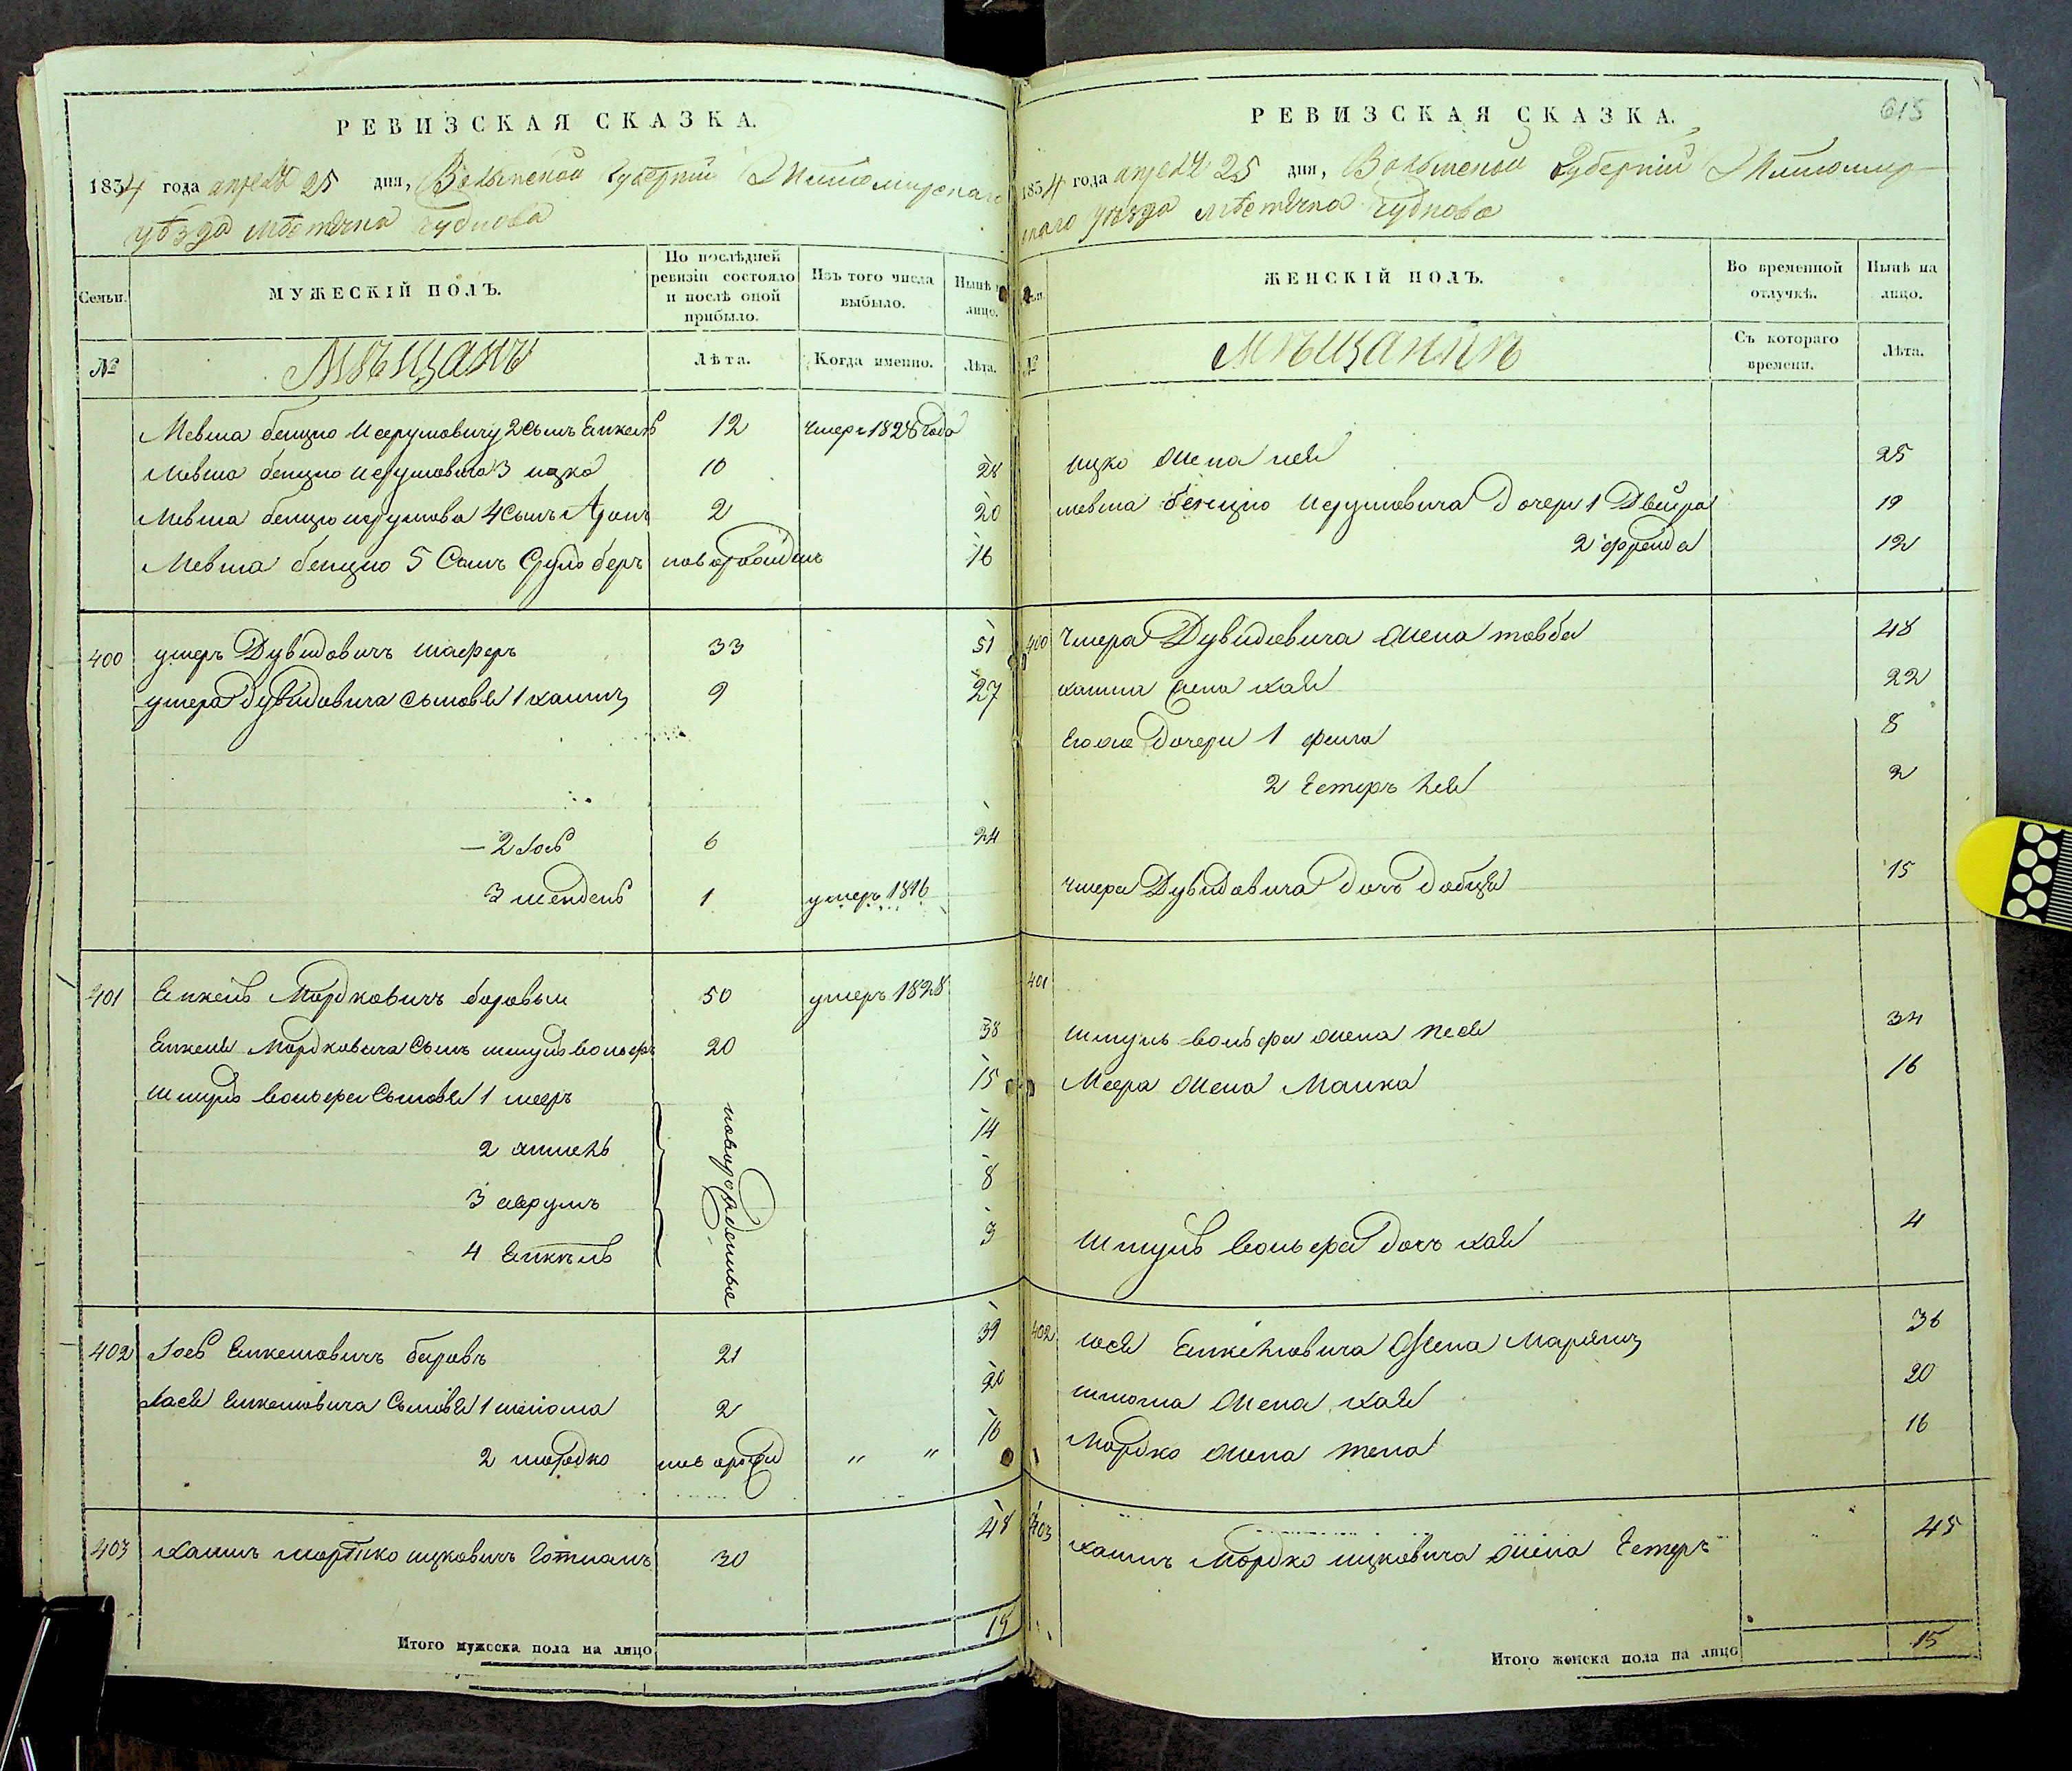 РЕВИЗСКАЯ СКАЗКА.
1834 года апреля 25 дня, Волынской Губернии Житомирскаго
уѣзда мѣстечка Чуднова
Семьи.
МУЖЕСКІЙ ПОЛЪ.
По послѣдней ревизіи состояло и послѣ оной прибыло.
Изъ того числа выбыло.
Нынѣ на лицо.
№
Мѣщанъ
Лѣта.
Когда именно.
Лѣта.
Мевша бенцио 2 сынъ Емкель 12 умеръ 1828 года
Мевша бенцио 3 ицко 10 28
Мевша бенцио 4 сынъ Аронъ 2 20
Мевша бенцио 5 Сынъ Сруль беръ новорожденъ 16
400 ушеръ Дувидовичъ шаферъ 33 51
ушера Дувидовича сыновья 1 хаимъ 9 27
2 Іось 6 24
3 шендель 1 умеръ 1816
401 Емкель Мордковичъ боровыи 50 умеръ 1828
Емкеля Мордковича Сынъ шмуль вольфъ 20 38
шмуль вольфа Сыновья 1 мееръ 15
2 14
3 аврумъ 8
4 Емкель 3
новорожденные
402 Іось Емкелювичъ боровъ 21 39
Іося Емкелювича Сыновья 1 шлиома 2 20
2 мордко новорожд " " 16
403 хаимъ мортко ицковичъ 30 48
Итого мужеска пола на лицо 15
РЕВИЗСКАЯ СКАЗКА.
615
1834 года апреля 25 дня, Волынской Губерніи Житомир
скаго уѣзда мѣстечка Чуднова
ЖЕНСКІЙ ПОЛЪ.
Во временной отлучкѣ.
Нынѣ на лицо.
№
Мѣщанокъ
Съ котораго времени.
Лѣта.
ицко жена 25
мевша бенцио дочери 1 Двейра 19
2 фрейда 12
400 ушера Дувидовича жена товба 48
хаима жена хая 22
его же дочери 1 фейга 8
2 Естеръ 2
ушера Дувидовича дочь добця 15
401
шмуль вольфа жена песя 34
Меера жена Малка 16
шмуль вольфа дочь хая 4
402 Іося Емкелювича жена Марьямъ 36
шлиома жена хая 20
Мордко жена 16
403 хаимъ Мордко ицковича жена Естеръ 45
Итого женска пола на лицо 15